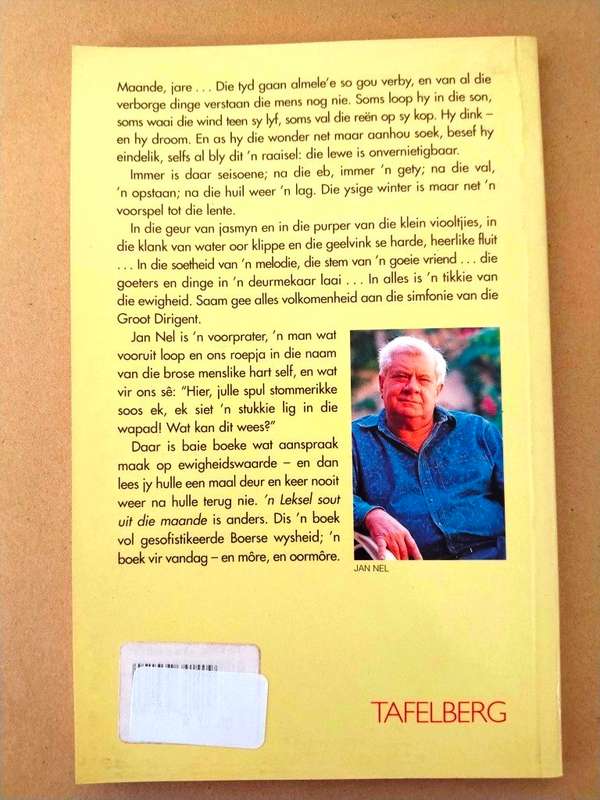 Maande, jare . . . Die tyd gaan almele'e so gou verby, en van al die
verborge dinge verstaan die mens nog nie. Soms loop hy in die son,
soms waai die wind teen sy lyf, soms val die reën op sy kop. Hy dink –
en hy droom. En as hy die wonder net maar aanhou soek, besef hy
eindelik, selfs al bly dit 'n raaisel: die lewe is onvernietigbaar.
Immer is daar seisoene; na die eb, immer 'n gety; na die val,
'n opstaan; na die huil weer 'n lag. Die ysige winter is maar net 'n
voorspel tot die lente.
In die geur van jasmyn en in die purper van die klein viooltjies, in
die klank van water oor klippe en die geelvink se harde, heerlike fluit
. . . In die soetheid van 'n melodie, die stem van 'n goeie vriend . . . die
goeters en dinge in 'n deurmekaar laai . . . In alles is 'n tikkie van
die ewigheid. Saam gee alles volkomenheid aan die simfonie van die
Groot Dirigent.
Jan Nel is 'n voorprater, 'n man wat
vooruit loop en ons roepja in die naam
van die brose menslike hart self, en wat
vir ons sê: "Hier, julle spul stommerikke
soos ek, ek siet 'n stukkie lig in die
wapad! Wat kan dit wees?"
Daar is baie boeke wat aanspraak
maak op ewigheidswaarde – en dan
lees jy hulle een maal deur en keer nooit
weer na hulle terug nie. 'n Leksel sout
uit die maande is anders. Dis 'n boek
vol gesofistikeerde Boerse wysheid; 'n
boek vir vandag – en môre, en oormôre.
JAN NEL
TAFELBERG